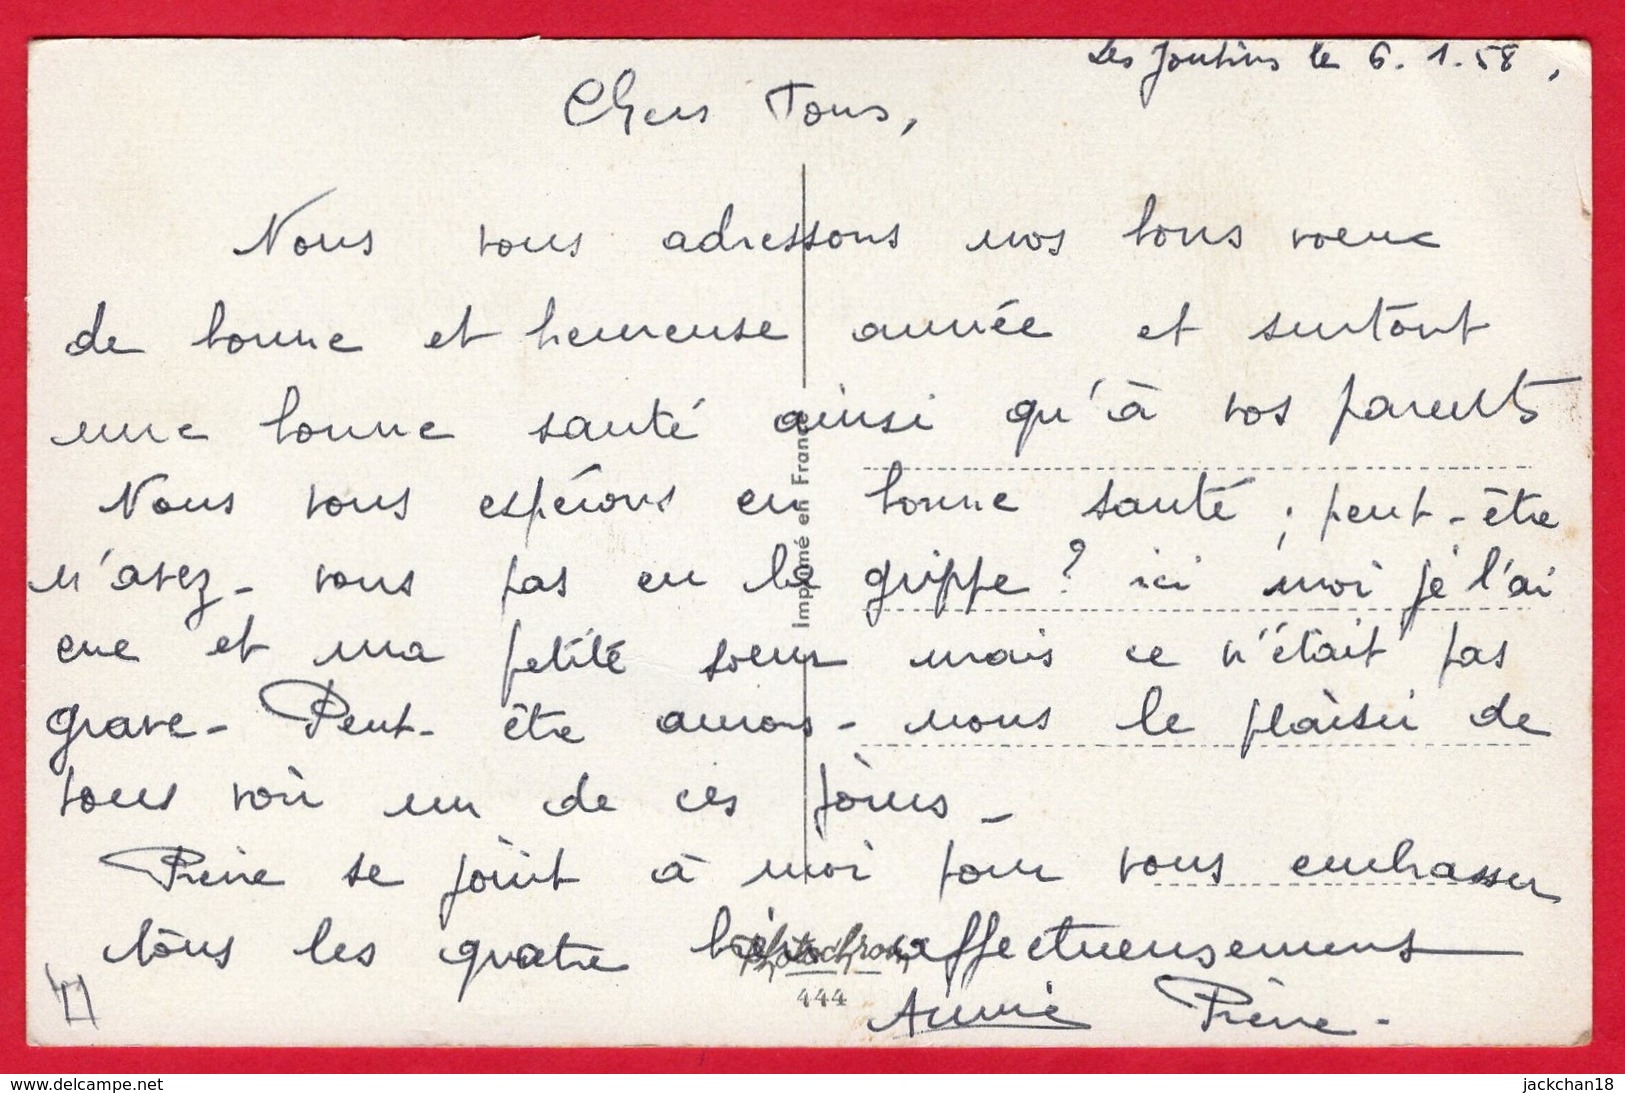 Les Joutins le 6.1.58,
Chers Tous,
Nous vous adressons nos bons voeux
de bonne et heureuse année et surtout
une bonne santé ainsi qu'à vos parents
Nous vous espérons en bonne santé, peut-être
n'avez-vous pas eu la grippe? ici moi je l'ai
eue et ma petite soeur mais ce n'était pas
grave - Peut-être aurons-nous le plaisir de
vous voir un de ces jours -
Pierre se joint à moi pour vous embrasser
tous les quatre bien affectueusement
Annie Pierre -
Imprimé en France
Photochrom
444
delcampe.net
jackchan18